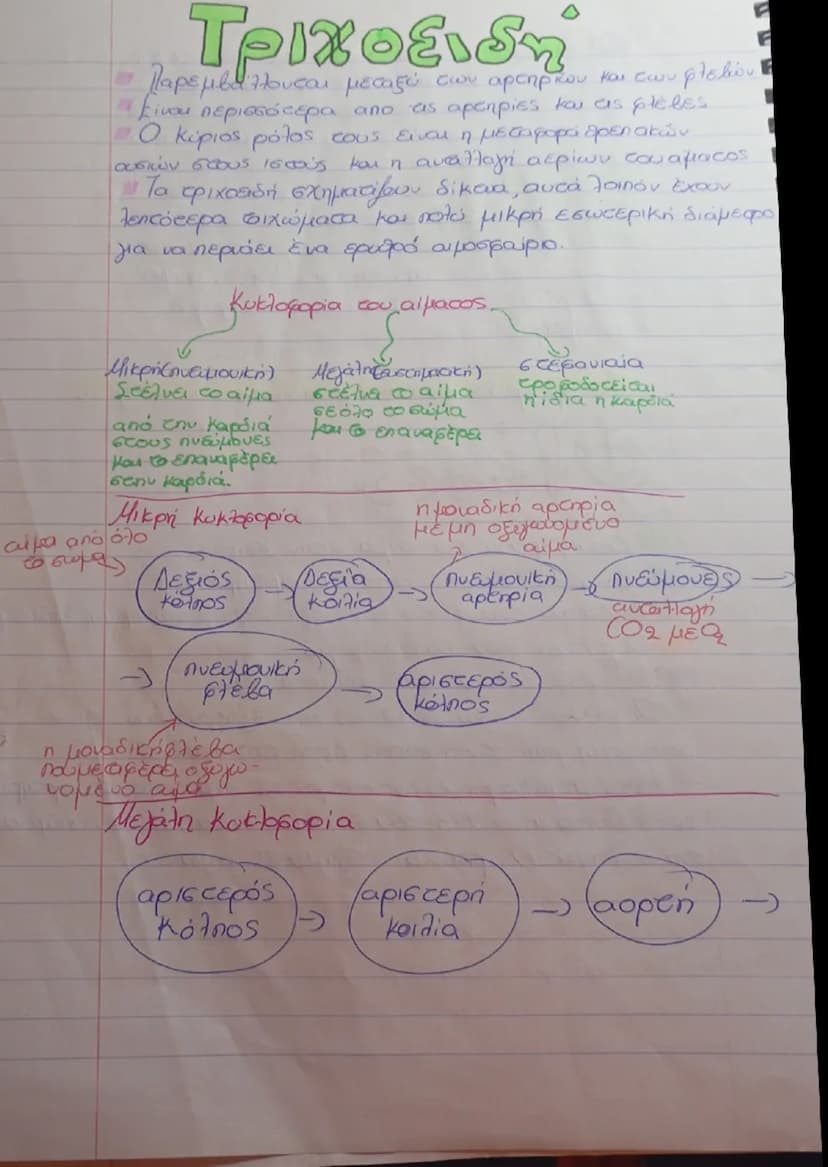 Τριχοειδή
Παρεμβάλλονται μεταξύ των αρτηριών και των φλεβών
Είναι περισσότερα απο τις αρτηρίες και τις φλέβες
Ο κύριος ρόλος τους είναι η μεταφορά θρεπτικών
ουσιών στους ιστούς και η ανταλλαγή αερίων του αίματος
Τα τριχοειδή σχηματίζουν δίκτυα, αυτά λοιπόν έχουν
λεπτότερα τοιχώματα και πολύ μικρή εσωτερική διάμετρο
για να περνάει ένα ερυθρό αιμοσφαίριο.
Κυκλοφορία του αίματος
Μικρή(πνευμονική) Μεγάλη(συστηματική) στεφανιαία
Στέλνει το αίμα στέλνει το αίμα τροφοδοτείται
από την καρδιά σε όλο το σώμα η ίδια η καρδιά
στους πνεύμονες και το επαναφέρει
και το επαναφέρει
στην καρδιά.
Μικρή κυκλοφορία
αίμα από όλο
το σώμα
η μοναδική αρτηρία
με μη οξυγονομένο
αίμα
Δεξιός κόλπος → Δεξία κοιλία → πνευμονική αρτηρία → πνεύμονες →
ανταλλαγή
CO2 με O2
→ πνευμονική φλέβα → αριστερός κόλπος
η μοναδική φλέβα
που μεταφέρει οξυγω-
νομένο αίμα
Μεγάλη κυκλοφορία
αριστερός κόλπος → αριστερή κοιλία → αορτή →